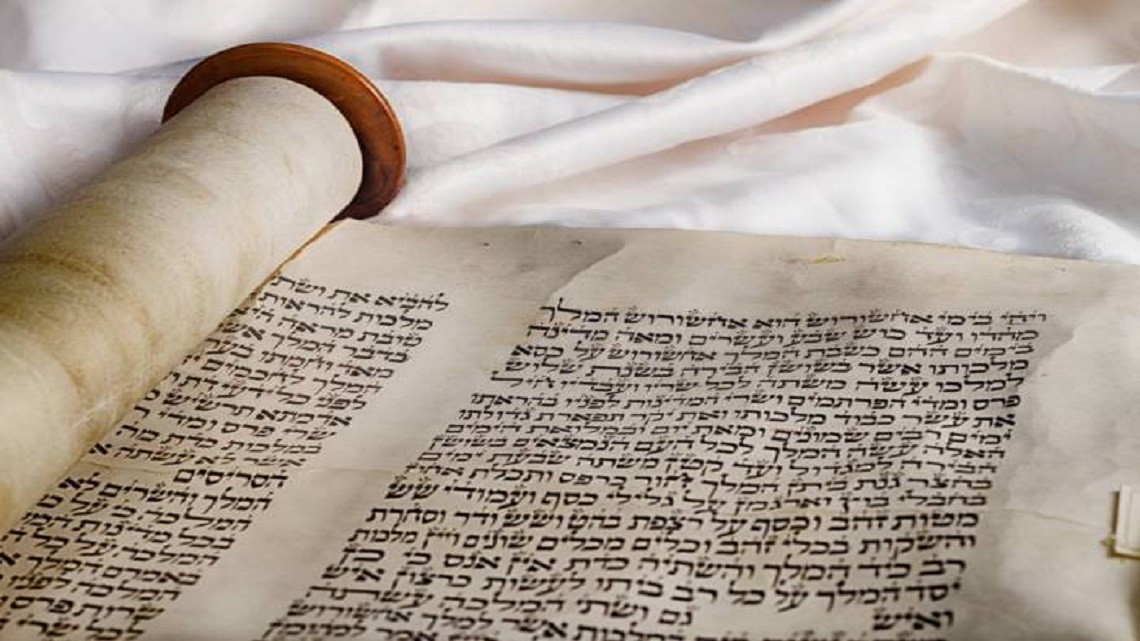 ויהי בימי אחשורוש הוא אחשורוש המלך
מהדו ועד כוש שבע ועשרים ומאה מדינה
בימים ההם כשבת המלך אחשורוש על כסא
מלכותו אשר בשושן הבירה בשנת שלוש
למלכו עשה משתה לכל שריו ועבדיו חיל
פרס ומדי הפרתמים ושרי המדינות לפניו בהראתו
את עשר כבוד מלכותו ואת יקר תפארת גדולתו
ימים רבים שמונים ומאת יום ובמלואת הימים
האלה עשה המלך לכל העם הנמצאים בשושן
הבירה למגדול ועד קטן משתה שבעת ימים
בחצר גנת ביתן המלך חור כרפס ותכלת אחוז
בחבלי בוץ וארגמן על גלילי כסף ועמודי שש
מטות זהב וכסף על רצפת בהט ושש ודר וסחרת
והשקות בכלי זהב וכלים מכלים שונים ויין מלכות
רב כיד המלך והשתיה כדת אין אנס כי כן
יסד המלך על כל רב ביתו לעשות כרצון איש
ואיש גם ושתי המלכה עשתה
המלכות אשר למלך אחשורוש
להביא את
מלכות להראות
טובת מראה היא
בדבר המלך
מאד וחמתו
המלך לחכמים
לפני כל
אדמתא תרשיש
שרי פרס ומדי
במלכות כדת מה
אשר לא עשתה
הסריסים
המלך והשרים
בכל מדינות
המלכה על כל
באמרם המלך
שרות פרס
לכל שרי